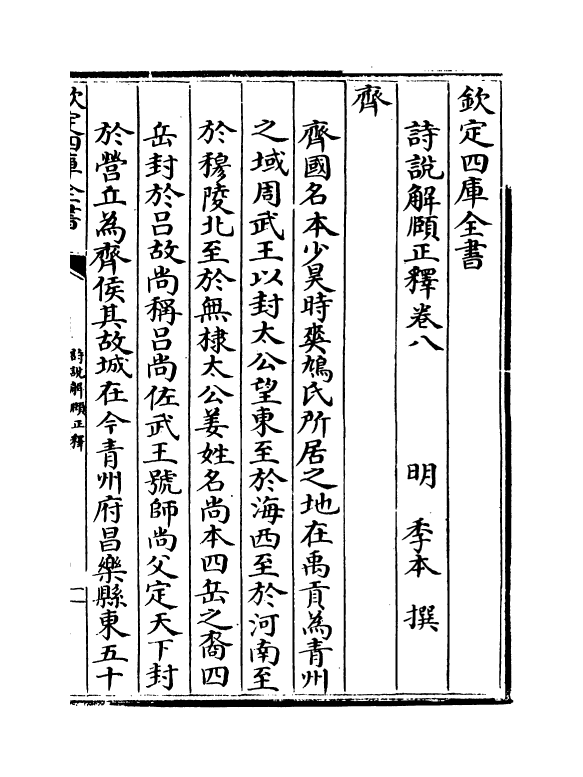 欽定四庫全書
詩說解頤正釋卷八　明　季本　撰
齊
齊國名本少昊時爽鳩氏所居之地在禹貢為青州
之域周武王以封太公望東至於海西至於河南至
於穆陵北至於無棣太公姜姓名尚本四岳之裔四
岳封於吕故尚稱吕尚佐武王號師尚父定天下封
於營丘為齊侯其故城在今青州府昌樂縣東五十
欽定四庫全書
詩說解頤正釋
一